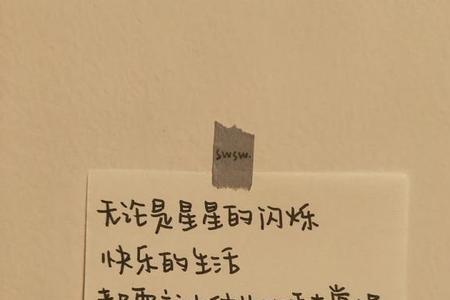 swsw.
无论是星星的闪烁
快乐的生活
都需要